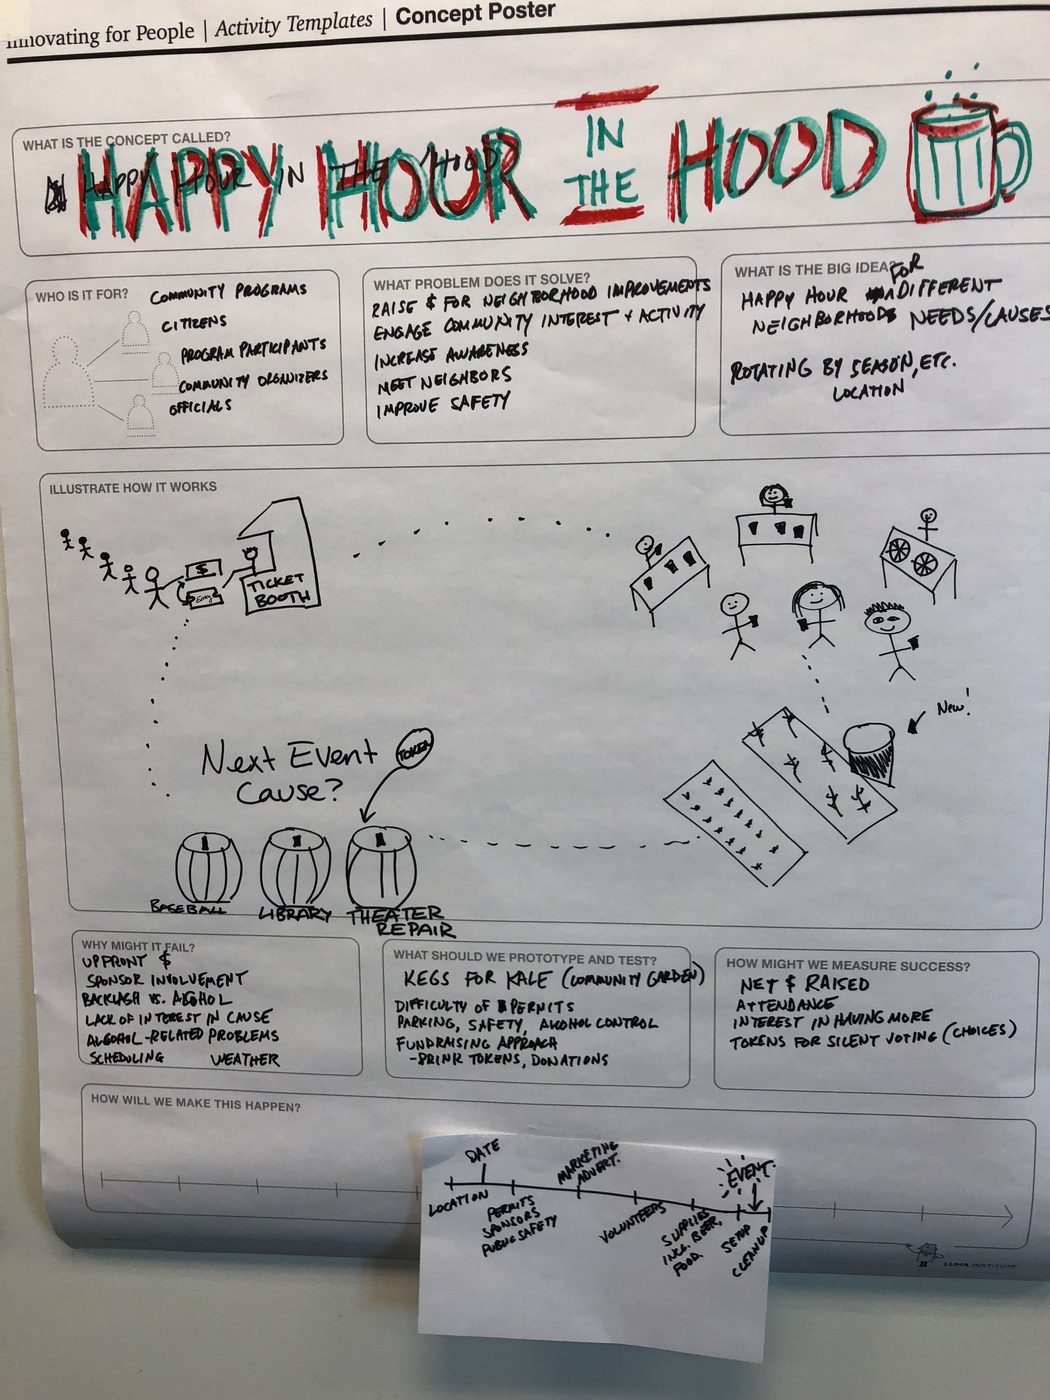 Innovating for People | Activity Templates | Concept Poster
WHAT IS THE CONCEPT CALLED?
HAPPY HOUR IN THE HOOD
HAPPY HOUR IN THE HOOD
WHO IS IT FOR?
COMMUNITY PROGRAMS
CITIZENS
PROGRAM PARTICIPANTS
COMMUNITY ORGANIZERS
OFFICIALS
WHAT PROBLEM DOES IT SOLVE?
RAISE $ FOR NEIGHBORHOOD IMPROVEMENTS
ENGAGE COMMUNITY INTEREST + ACTIVITY
INCREASE AWARENESS
MEET NEIGHBORS
IMPROVE SAFETY
WHAT IS THE BIG IDEA?
HAPPY HOUR FOR DIFFERENT
NEIGHBORHOODS NEEDS/CAUSES
ROTATING BY SEASON, ETC.
LOCATION
ILLUSTRATE HOW IT WORKS
$
TICKET
BOOTH
New!
Next Event
Cause?
TOKEN
BASEBALL
LIBRARY
THEATER
REPAIR
WHY MIGHT IT FAIL?
UPFRONT $
SPONSOR INVOLVEMENT
BACKLASH VS. ALCOHOL
LACK OF INTEREST IN CAUSE
ALCOHOL-RELATED PROBLEMS
SCHEDULING WEATHER
WHAT SHOULD WE PROTOTYPE AND TEST?
KEGS FOR KALE (COMMUNITY GARDEN)
DIFFICULTY OF PERMITS
PARKING, SAFETY, ALCOHOL CONTROL
FUNDRAISING APPROACH
-DRINK TOKENS, DONATIONS
HOW MIGHT WE MEASURE SUCCESS?
NET $ RAISED
ATTENDANCE
INTEREST IN HAVING MORE
TOKENS FOR SILENT VOTING (CHOICES)
HOW WILL WE MAKE THIS HAPPEN?
DATE
LOCATION
PERMITS
SPONSORS
PUBLIC SAFETY
MARKETING
ADVERT.
VOLUNTEERS
SUPPLIES
INCL. BEER,
FOOD
EVENT
SETUP
CLEANUP
LUMA INSTITUTE